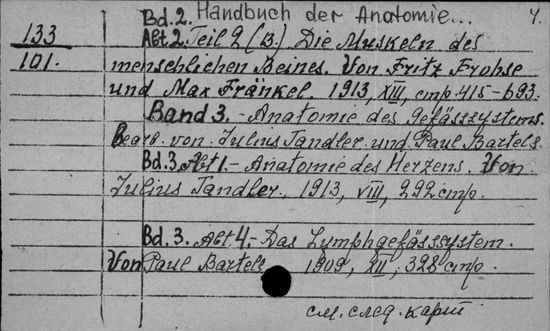 Handbuch der Anatomie... 4.
Bd. 2.
133 Abt 2. Teil 2 (B.) Die Muskeln des
101. menschlichen Beines. Von Fritz Frohse
und Max Fränkel. 1913, XIII, стр. 415-693.
Band 3. - Anatomie des Gefässsystems.
Bearb. von Julius Tandler und Paul Bartels.
Bd. 3. Abt 1. - Anatomie des Herzens. Von
Julius Tandler. 1913, VIII, 292 стр.
Bd. 3. Abt. 4. - Das Lymphgefässsystem.
Von Paul Bartels 1909, XII, 328 стр.
см. след. карт